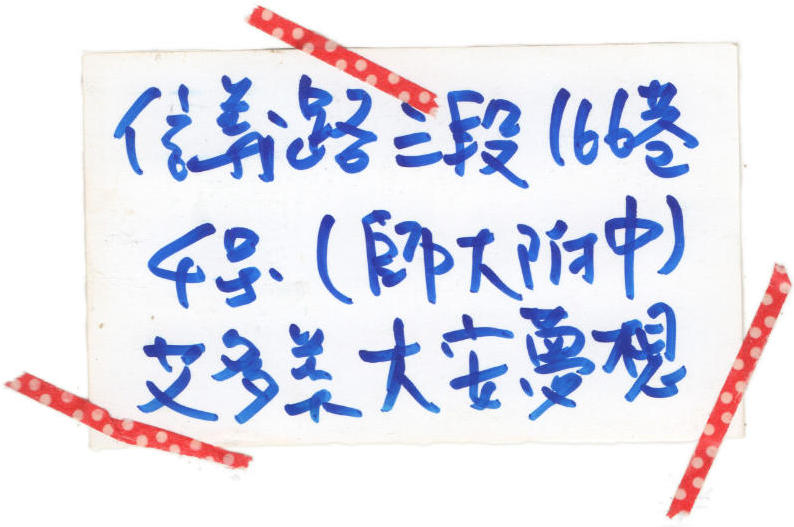 信義路三段166巷
4号(師大附中)
艾多美大安夢想